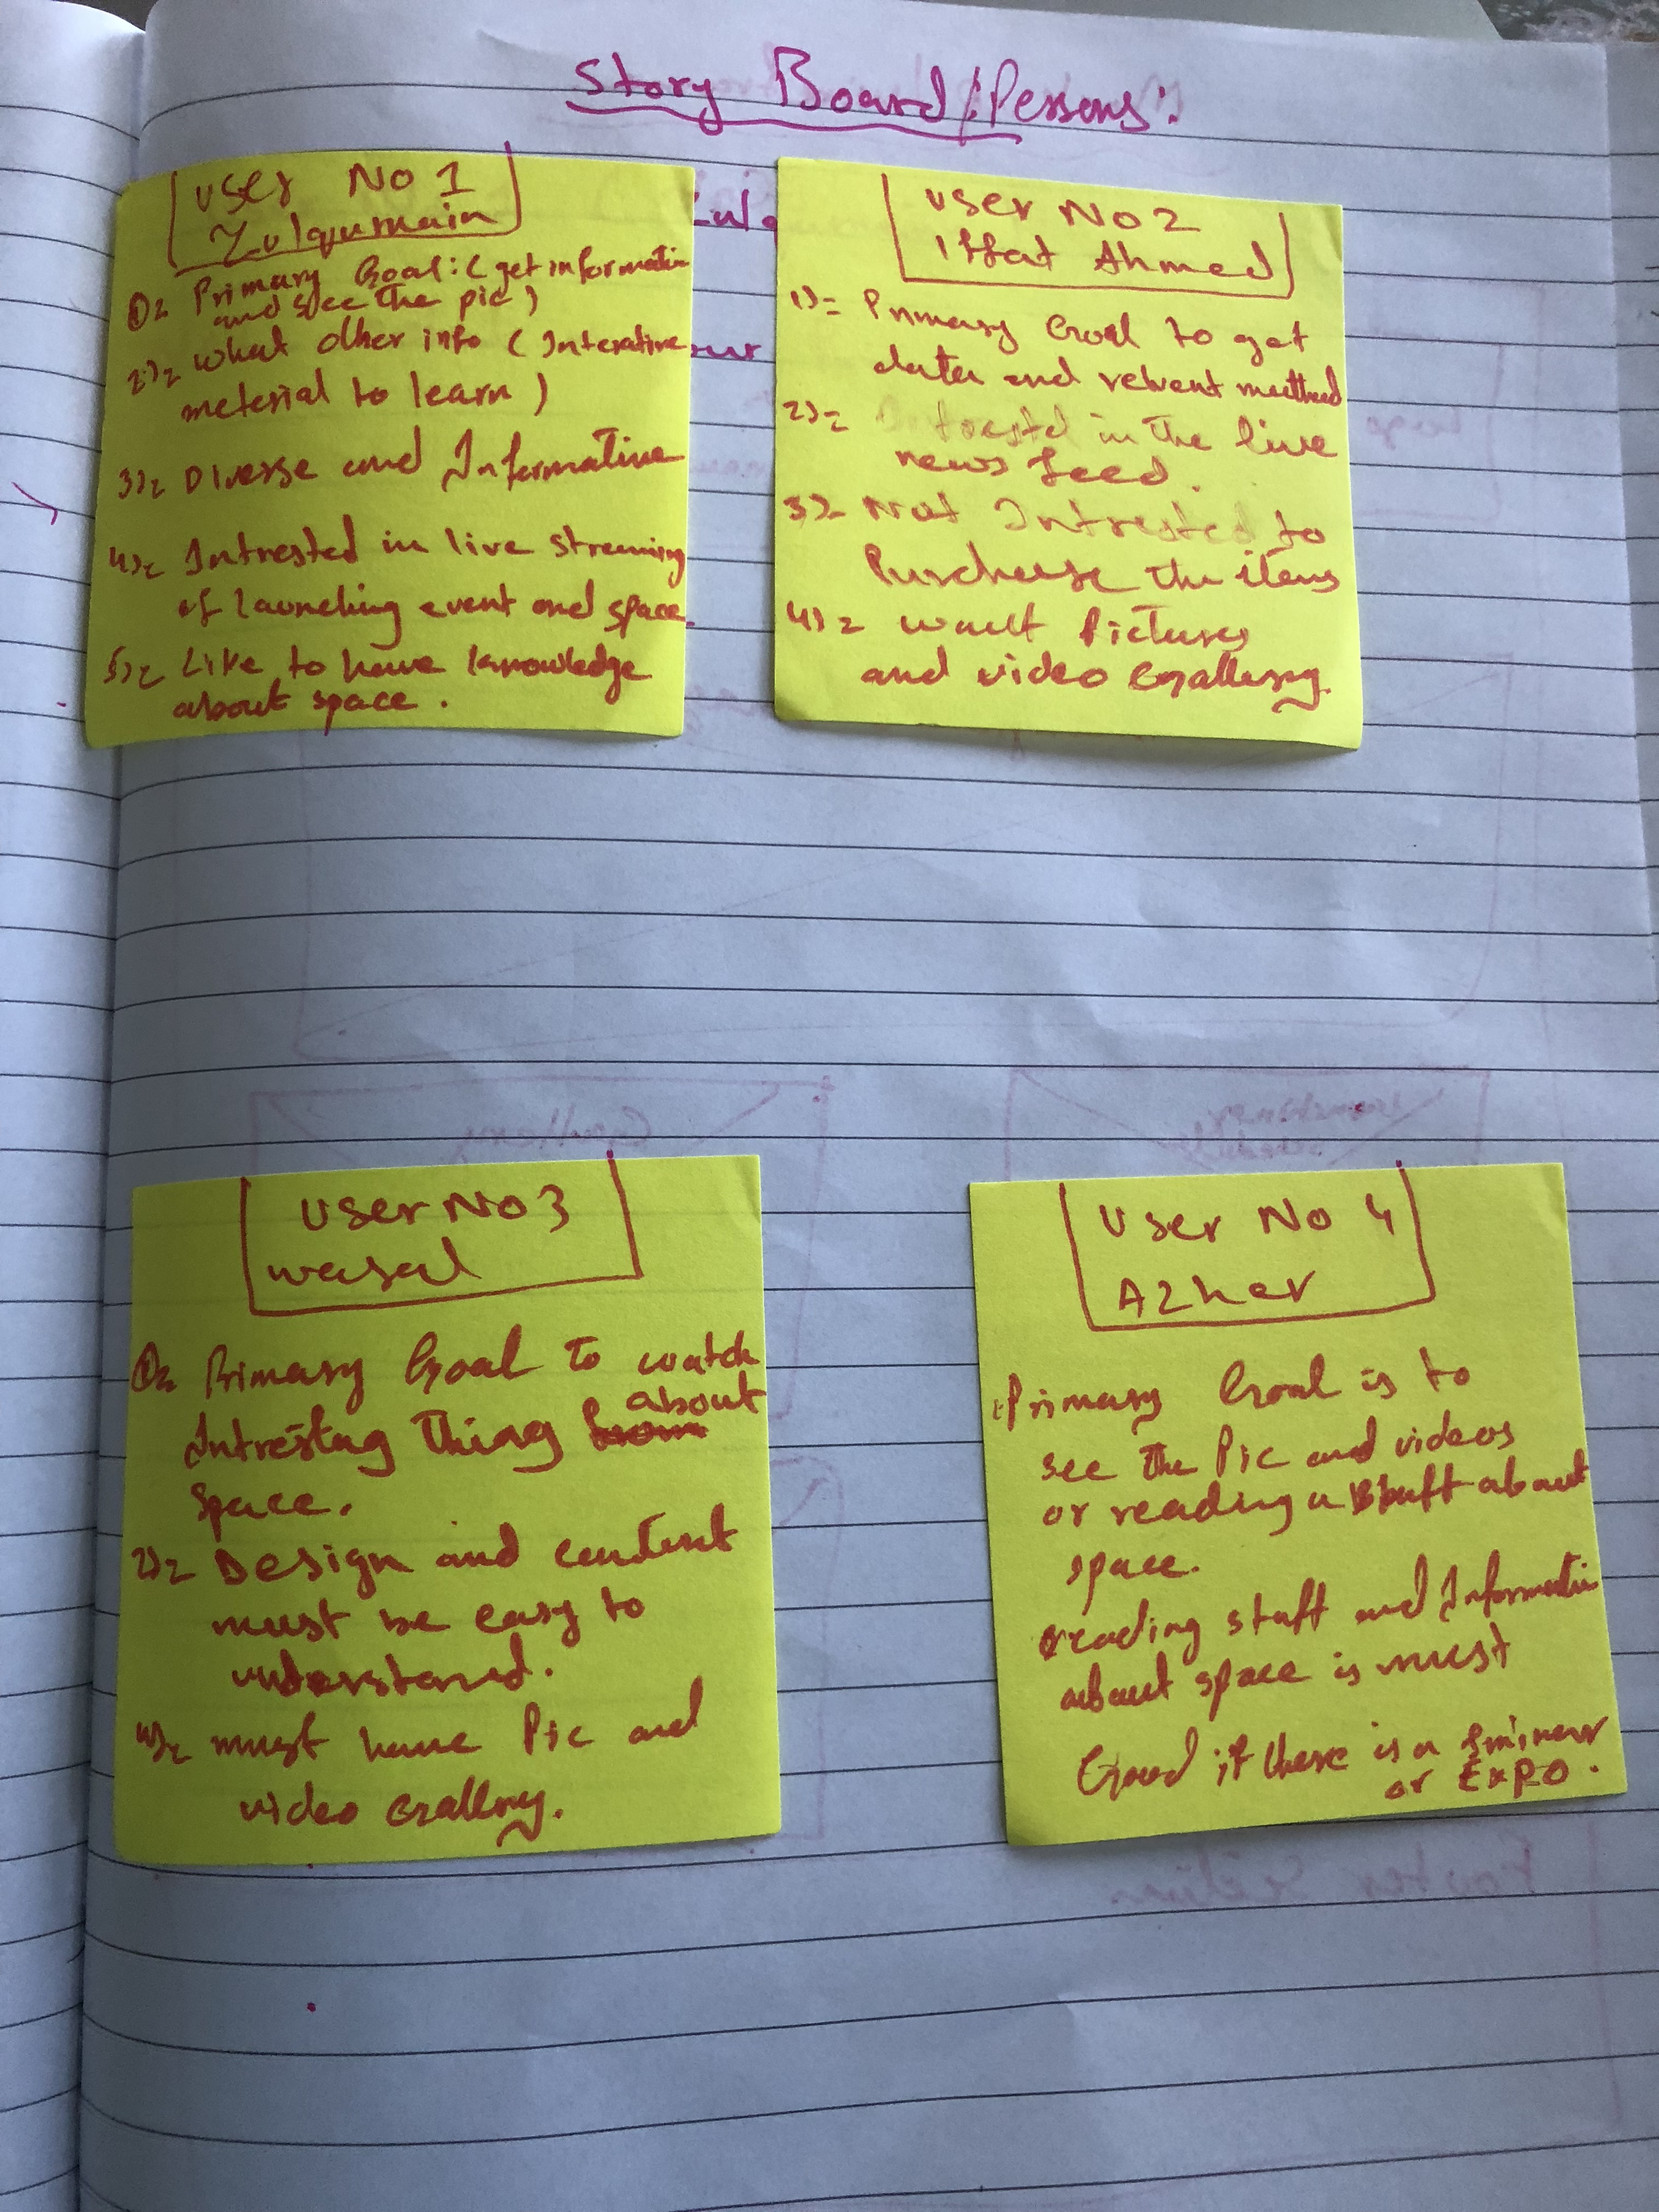 Story Board/Persons:
User No 1
Zulqurnain
1)= Primary Goal: (get informatin
and see the pic)
2)= What other info (Interative
meterial to learn)
3)= Diverse and Informative
4)= Intrested in live streming
of launching event and space.
5)= Like to have knowledge
about space.
User No 2
Iffat Ahmed
1)= Primary Goal to get
data and relvent
2)= Intrestd in the live
news feed.
3)= Not Intrested to
Purchase the items
4)= want Pictures
and video Gallery.
User No 3
wasal
1)= Primary Goal to watch
about
Intresting thing
space.
2)= Design and content
must be easy to
understand.
4)= must have Pic and
video Gallery.
User No 4
Azher
Primary Goal is to
see the Pic and videos
or reading a about
space.
reading stuff and Informatin
about space is must
Good if there is a
or EXPO.